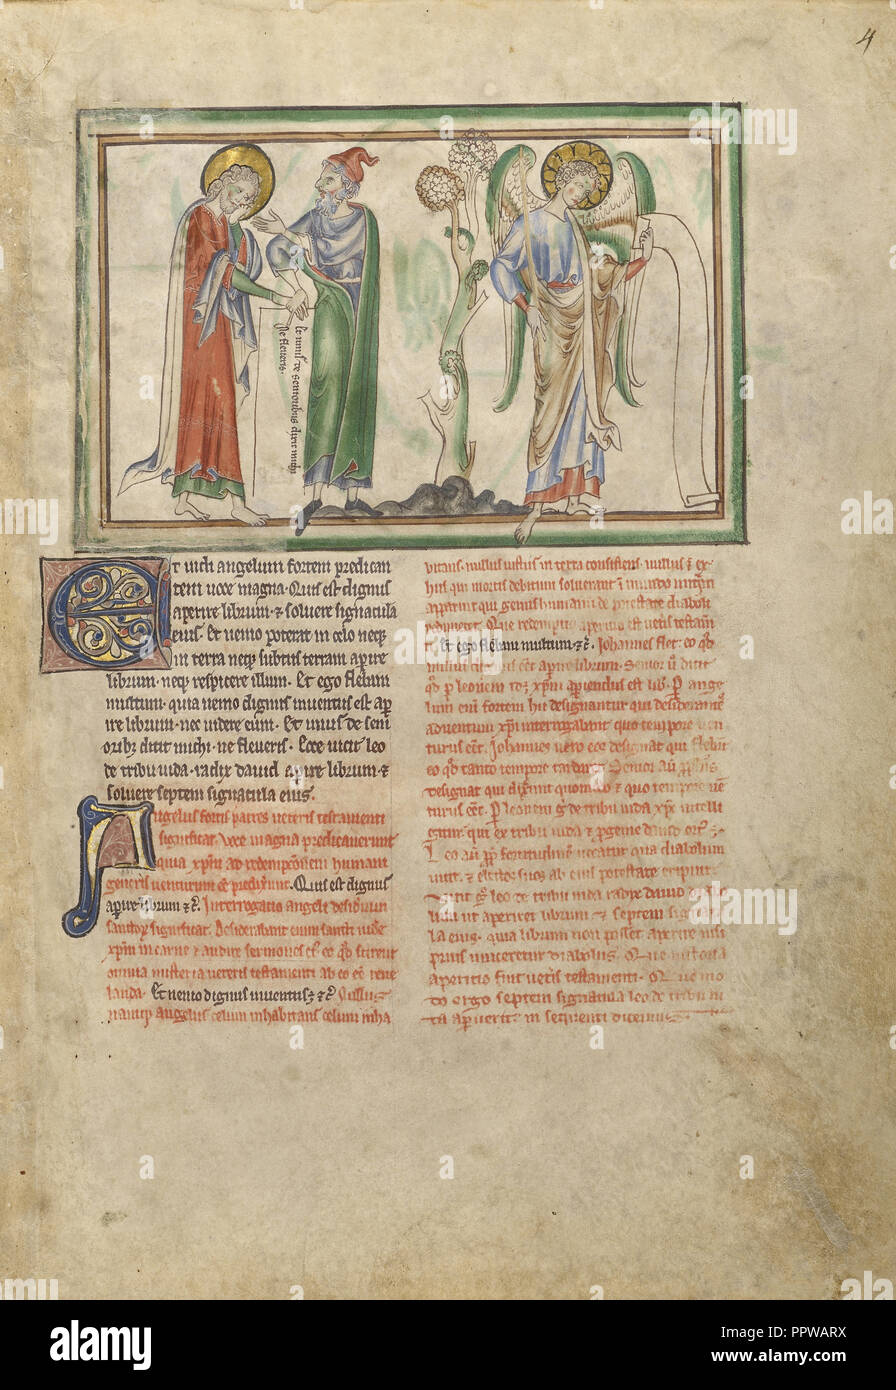 4
Et unus de senioribus dixit michi
Ne fleveris.
Et vidi angelum fortem predican
tem voce magna. Quis est dignus
aperire librum. & solvere signacula
eius. Et nemo poterat in celo neq;
in terra neq; subtus terram aperire
librum. neq; respicere illum. Et ego flebam
multum. quia nemo dignus inventus est ap
ire librum. nec videre eum. Et unus de seni
orib; dicit michi. ne fleveris. Ecce vicit leo
de tribu iuda. radix david aperire librum. &
solvere septem signacula eius.
Angelus fortis patres veteris testamenti
significat. Voce magna predicaverunt
quia xpm ad redemptionem humani
generis venturum predixerunt. Quis est dignus
aperire librum &c. Interrogatio angeli desiderium
sanctorum significat. Desiderabant enim sancti videre
xpm in carne & audire sermones
omnia misteria veteris testamenti ab eo
landa. Et nemo dignus inventus &c. Nullus
namq; angelus celum inhabitans celum inha
bitans. nullus iustus in terra consistens. nullus
hiis qui mortis debitum solverant
apparuit qui genus humanum de potestate diaboli
redimeret. Que redemptio apertio est veteris testamenti
Et ego flebam multum. &c. Johannes flet eo qd
nullus aperire librum. Senior dicit
qd leonem xpm aperiendus est lib. Per ange
lum fortem hii designantur qui desiderantes
adventum xpi interrogabant quo tempore ven
turus esset. Johannes vero eos designat qui flebat
eo qd tanto tempore tardaret. Senior
designat qui dixerunt quomodo & quo tempore ven
turus esset. Per leonem de tribu iuda xpc intelli
gitur. qui ex tribu iuda & progenie david ortus
Leo propter fortitudinem vocatur quia diabolum
vicit. & electos suos ab eius potestate eripuit
Vicit leo de tribu iuda radix david
librum ut aperiret librum & septem signacu
la eius. quia librum non posset aperire nisi
prius vinceretur diabolus. Que
apertio fuit veteris testamenti. Quo mo
do ergo septem signacula leo de tribu iu
da aperuerit in sequenti dicemus.
alamy
Image ID: PPWARX
www.alamy.com